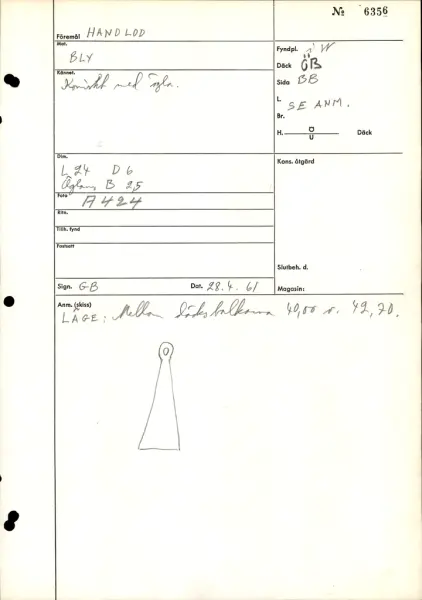 № 6356
Föremål HANDLOD
Mat.
BLY
Fyndpl. i W
Däck ÖB
Sida BB
Kännet.
Koniskt med ögla.
L. SE ANM.
Br.
H. Ö U Däck
Dim.
L 24 D 6
Öglans B 2,5
Kons. åtgärd
Foto A 424
Ritn.
Tillh. fynd
Fastsatt
Slutbeh. d.
Sign. GB Dat. 28.4.61
Magasin:
Anm. (skiss)
LÄGE: Mellan däcksbalkarna 40,00 o. 42,70.